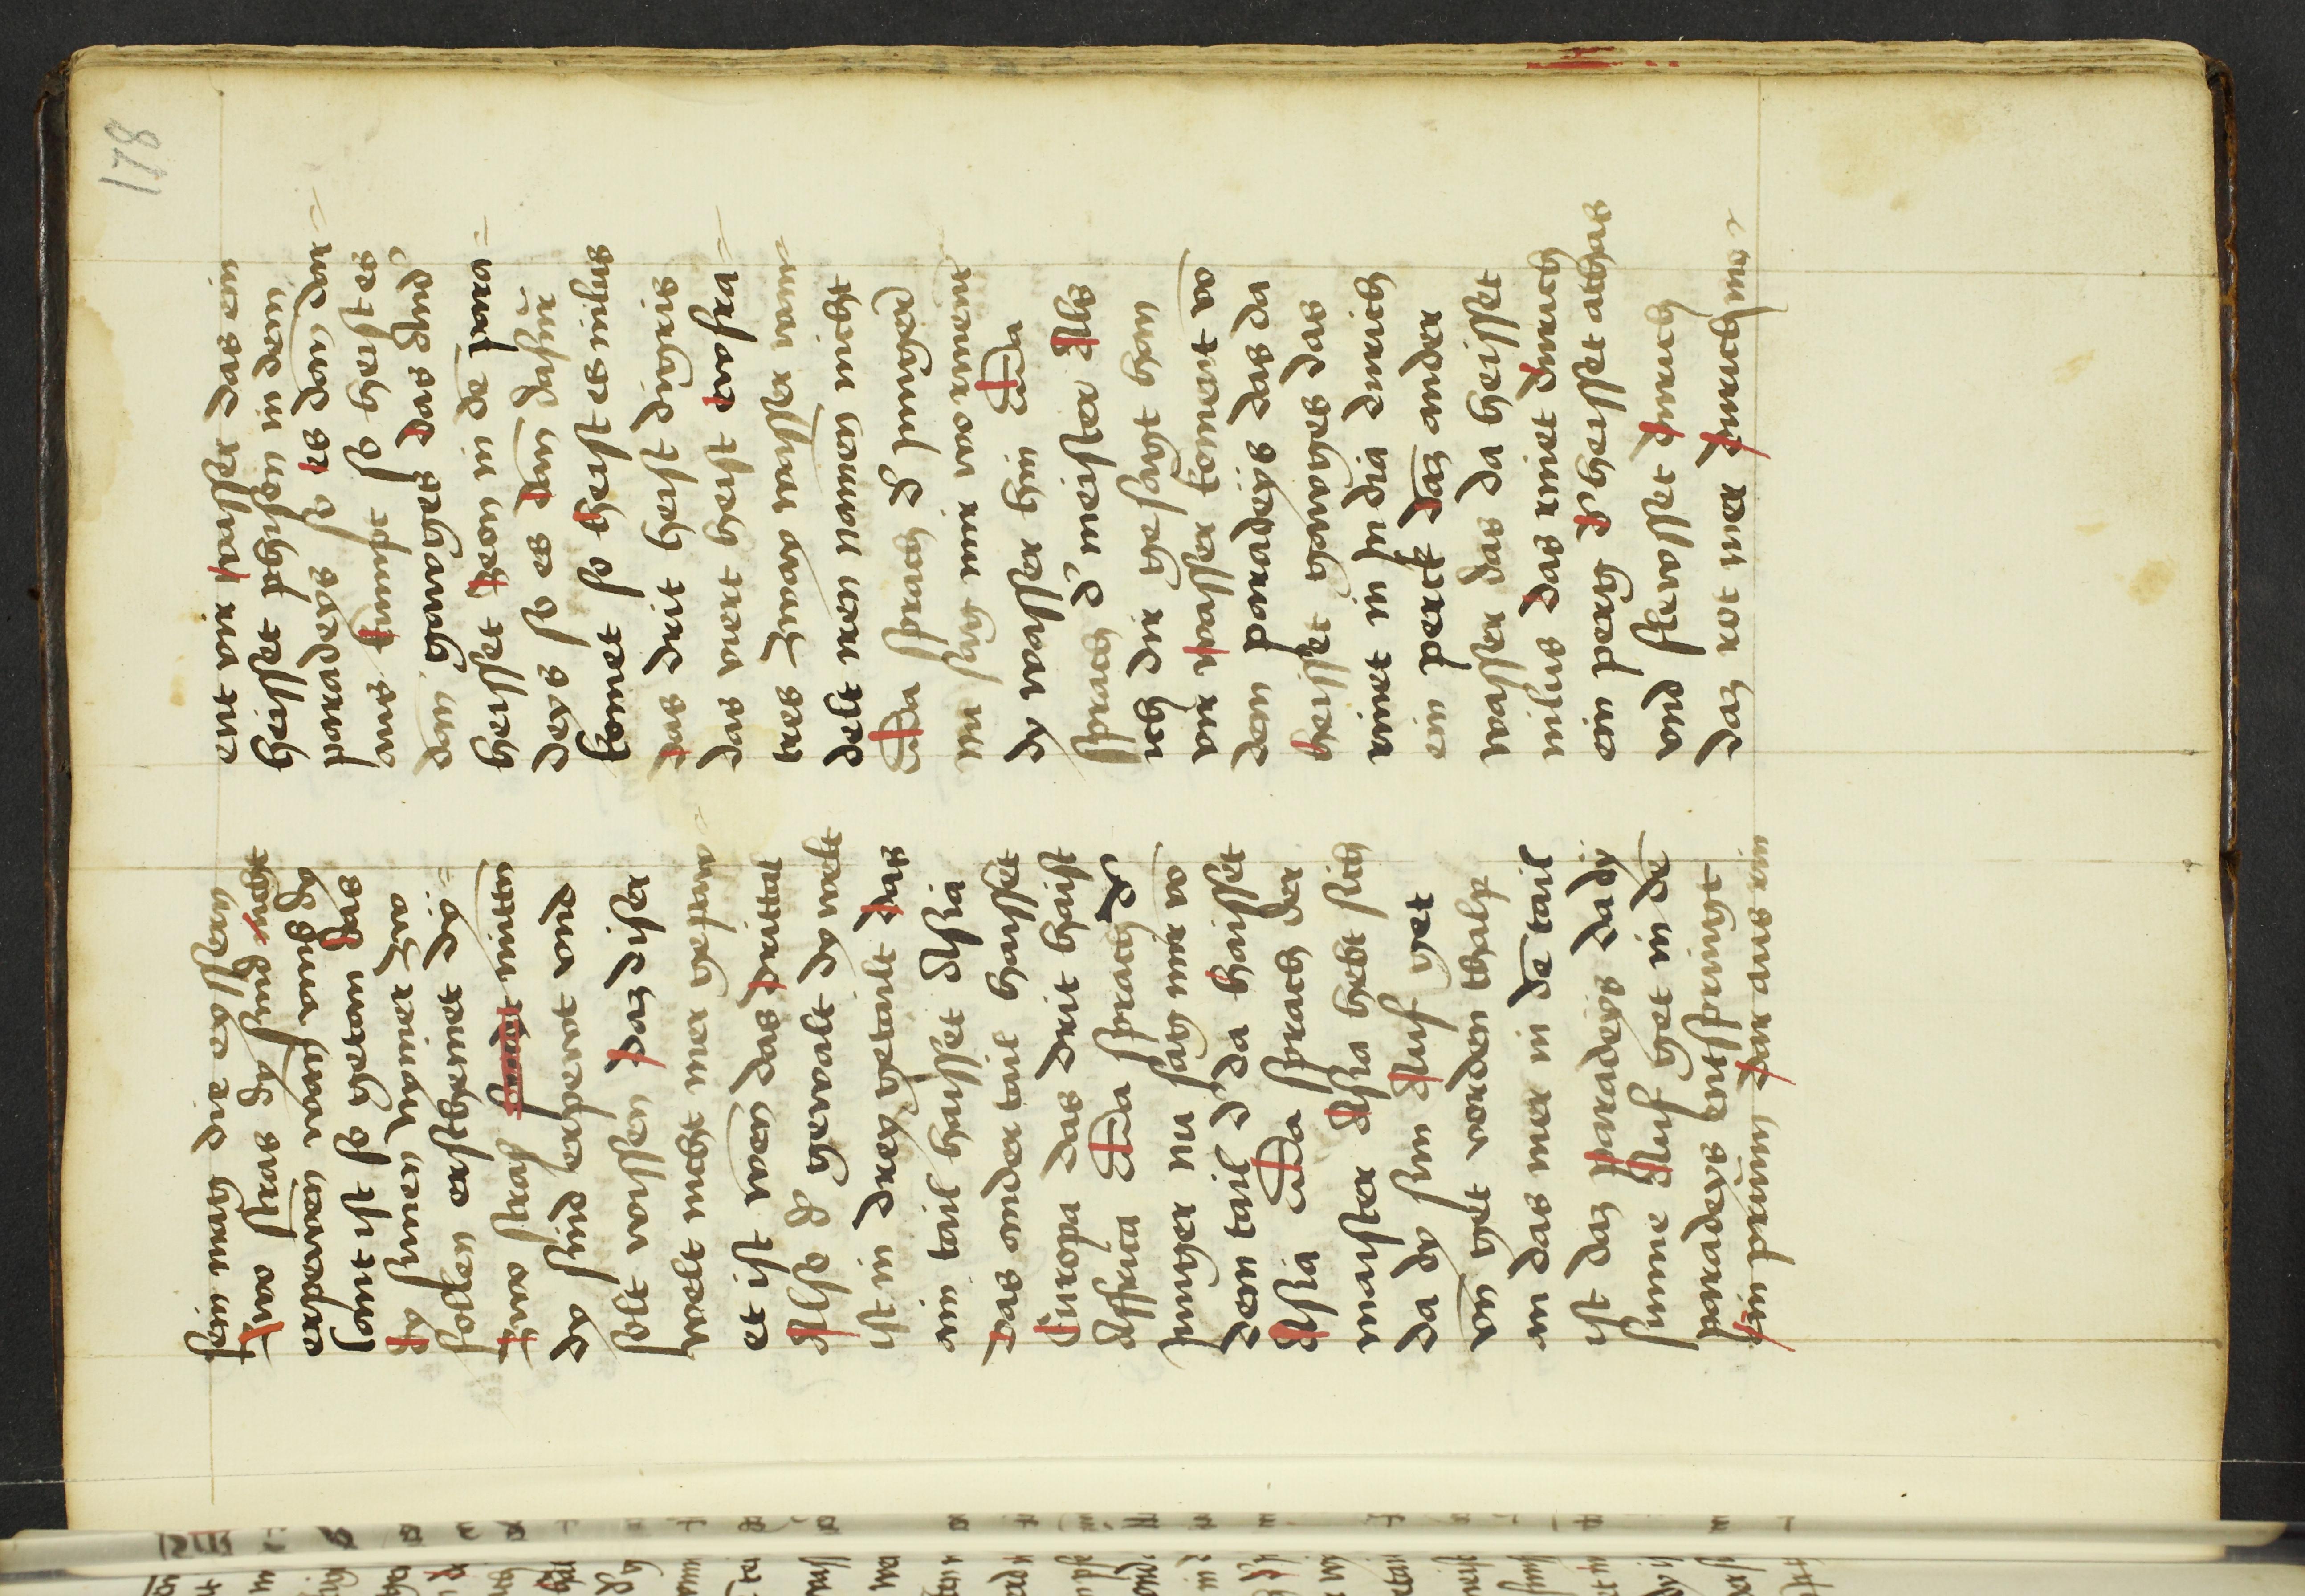 178
sein mag die eysseren
zwo stras dy sind nicht
erpawen wan vmb dy
lant ist so getan das
dy sunnen nymer zw
sollen erschemet dy=
zwo straß mitten
dy sind erpewt vnd
solt wissen daz diser
welt nicht mer gepaw=
et ist wen das drittal
Also d' gewalt dy welt
ist in drey getailt das
ain tail haisset Asia
das ander tail haysset
Europa das drit haist
Affrica Da sprach der
junger nu sag mir vo
dem tail d' da haisset
Asia Da sprach der
maister Asia hebt sich
da dy sun Auf get
von get norden thalp
an das mer in de tail
ist daz paradeys da dy
sunne Auf get in de
paradeys entspringt
ein prunn dar aus rin
ent vir wasser das ein
heisset phison in dem
paradeys so es dan dar=
aus kumpt so heist es
dan ganges das And'
heisset Jeon in de para=
deys so es dan dafur
komet so heist es nilus
das drit heist tigris
das viert heist eufra=
tes zway wasser wan=
delt iren namen nicht
Da sprach d' junger
nu sag mir wo rinent
dy wasser hin Da
sprach d' meister Als
ich dir gesagt han
vir wasser koment vo
dem paradeys das da
heisset ganges das
rinet in India durich
ein perck daz ander
wasser das da heisset
nilus das rinet durich
ein perg d' heisset athas
vnd flewsset durich
daz rot mer durich mo=